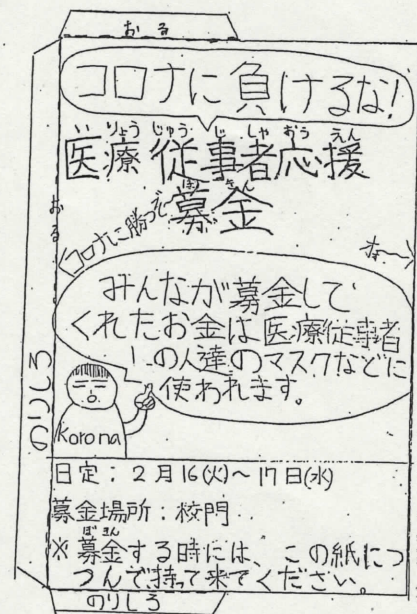 おる
コロナに負けるな!
いりょうじゅうじしゃおうえん
医療従事者応援
ぼきん
募金
コロナに勝つぞー
オ〜
おる
みんなが募金して
くれたお金は医療従事者
の人達のマスクなどに
使われます。
korona
のりしろ
日定:2月16(火)〜17日(水)
募金場所:校門
ぼきん
※募金する時には、この紙につ
つんで持って来てください。
のりしろ